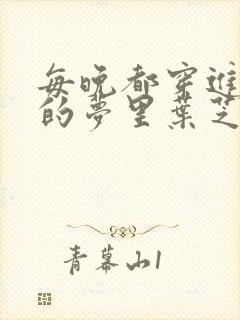 每晚都穿进
的夢里葉芝
青幕山1